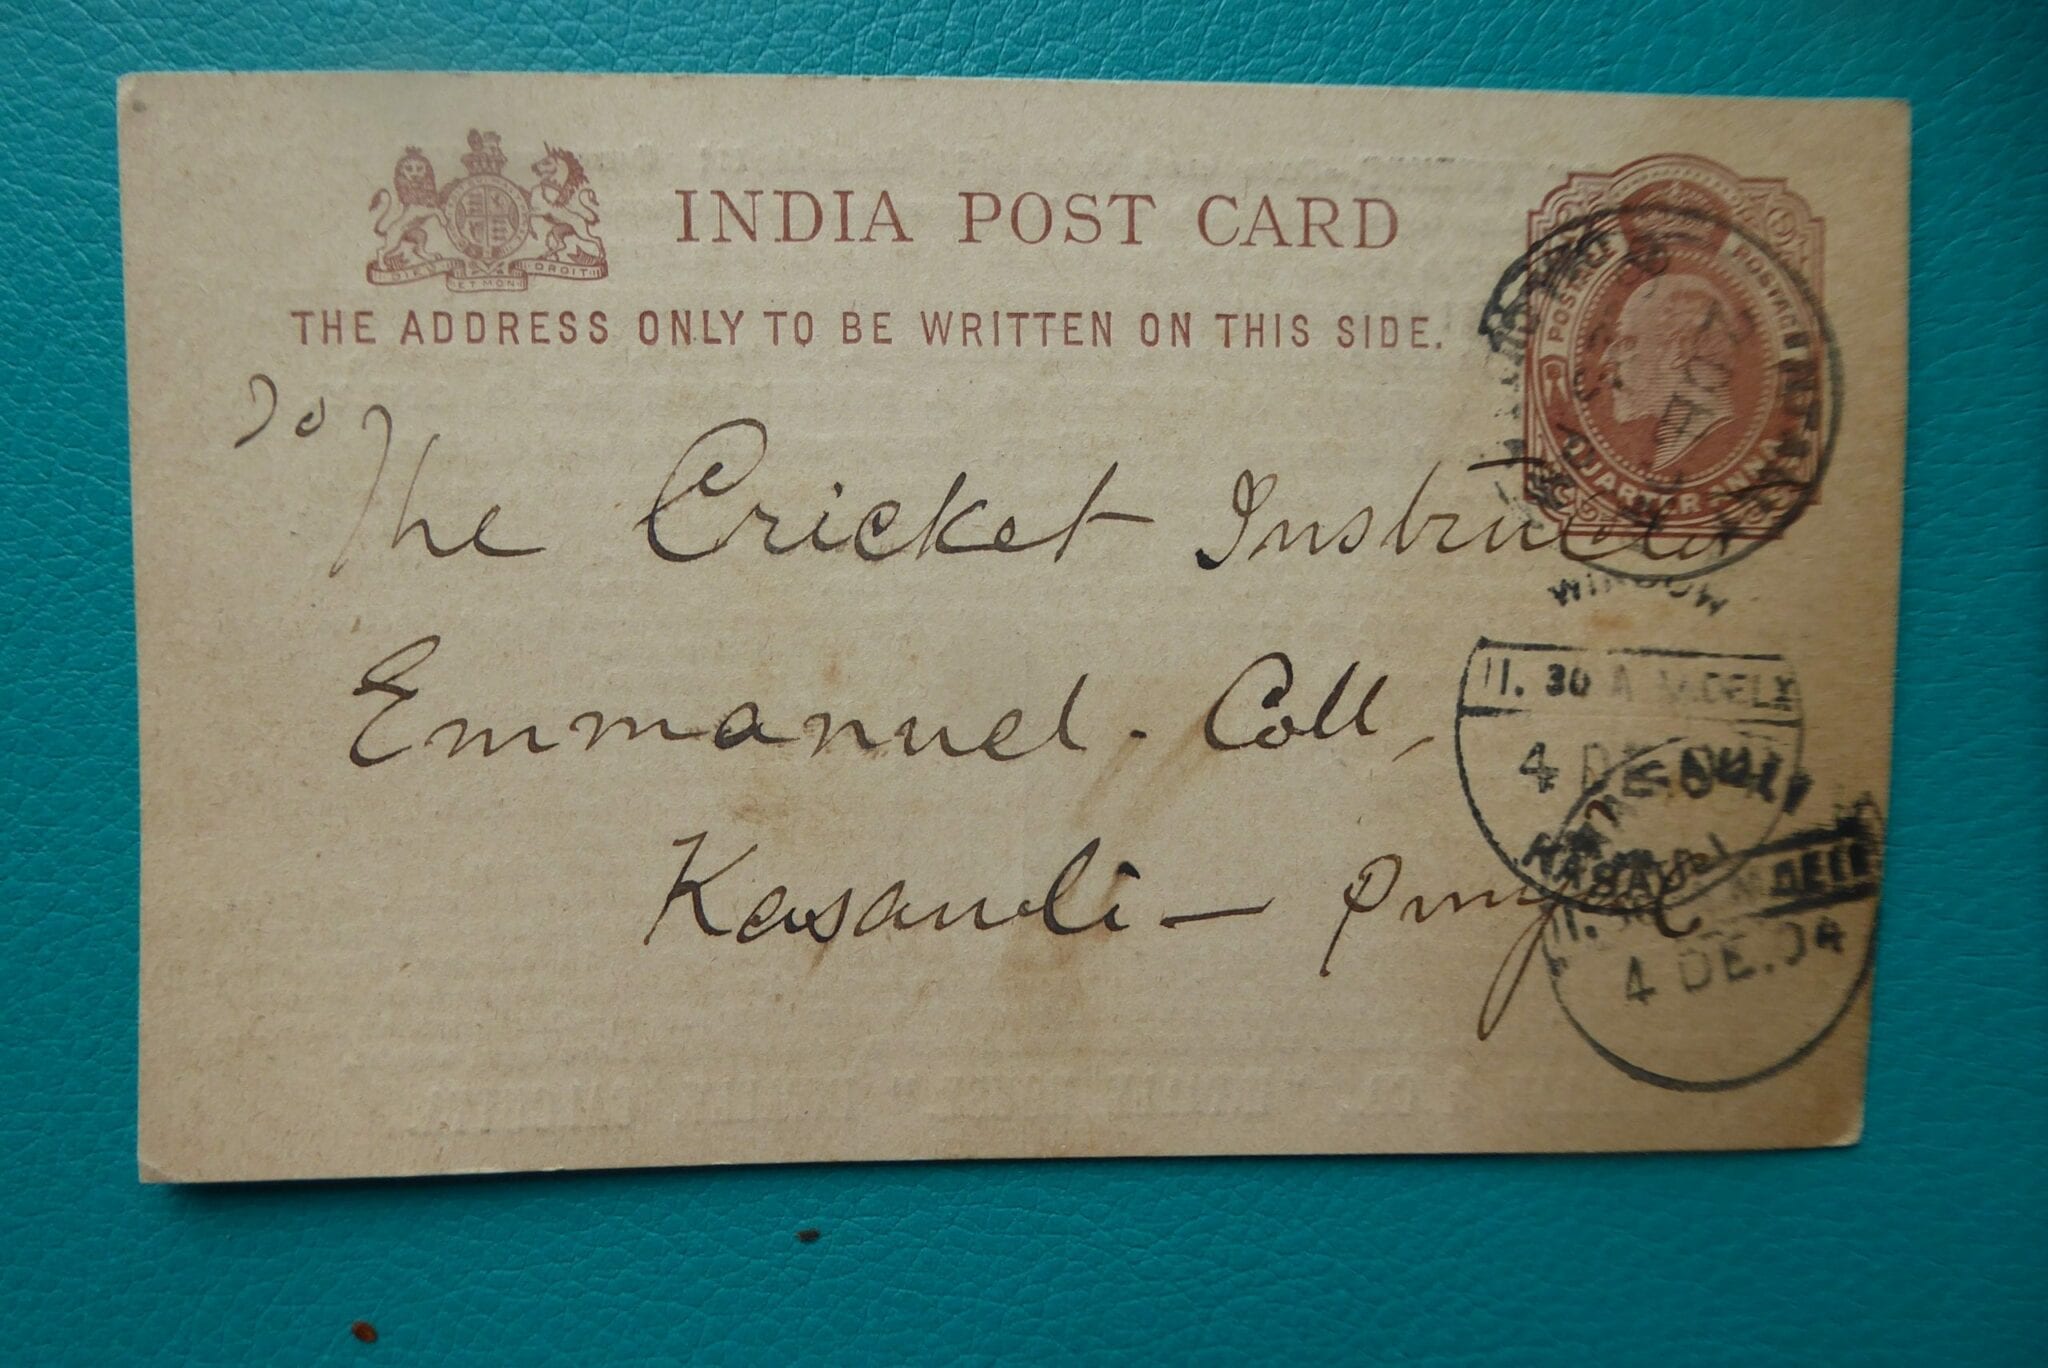 INDIA POST CARD
DIEU ET MON DROIT
THE ADDRESS ONLY TO BE WRITTEN ON THIS SIDE.
POSTAGE
QUARTER ANNA
To
The Cricket Instructor
Emmanuel. Coll,
Kasauli — Punjab
WINDOW
11. 30 A.M. DELY
4 DE
KASAULI
11.30 A.M. DELY
4 DE.04